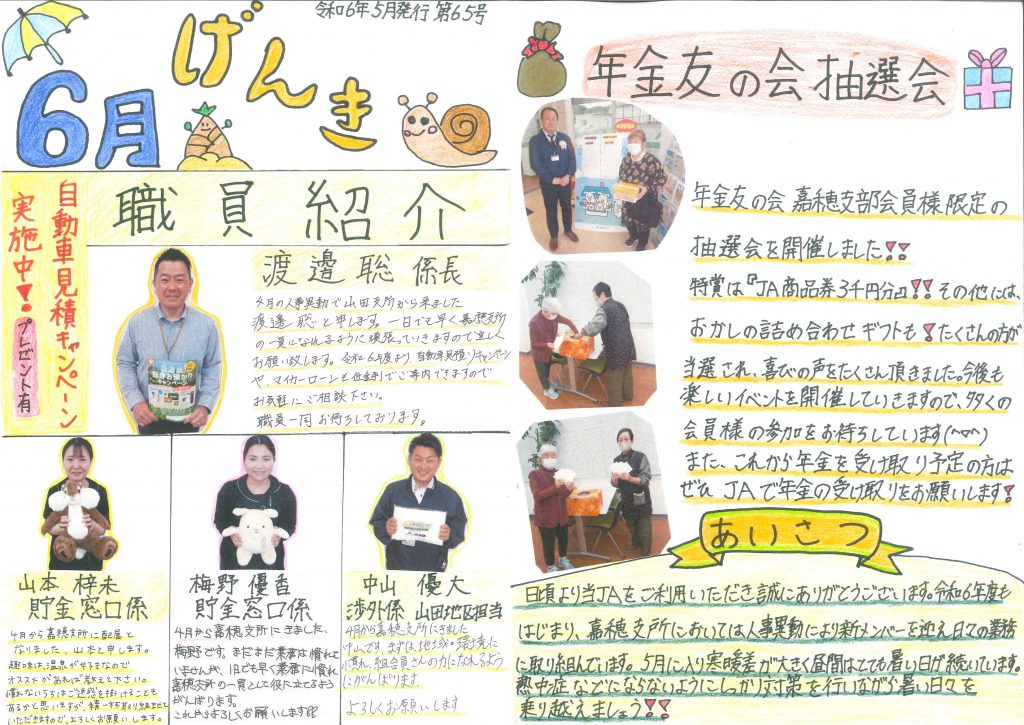 令和6年5月発行 第65号
6月
げんき
自動車見積キャンペーン
実施中!
プレゼント有
職員紹介
渡邉聡 係長
4月の人事異動で山田支所から来ました
渡邉聡と申します。一日でも早く嘉穂支所
の一員になれるように頑張っていきますので宜しく
お願い致します。令和6年度より、自動車見積りキャンペーン
や、マイカーローンを低金利でご案内できますので
お気軽にご相談下さい。
職員一同お待ちしております。
山本 梓未
貯金窓口係
4月から嘉穂支所に配属と
なりました、山本と申します。
趣味は温泉が好きなので
オススメがあれば教えて下さい。
慣れないうちはご迷惑を掛けることも
あるかと思いますが、精一杯取り組ませて
いただきますので、よろしくお願いします。
梅野 優香
貯金窓口係
4月から嘉穂支所にきました、
梅野です。まだまだ業務は慣れて
いませんが、1日でも早く業務に慣れ
嘉穂支所の一員として役に立てるよう
がんばります。
これからよろしくお願いします!!
中山 優大
渉外係 山田地区担当
4月から嘉穂支所にきました
中山です。まずは地域・環境に
慣れ、組合員さんの力になれるよう
にがんばります
よろしくお願いします
年金友の会 抽選会
年金友の会 嘉穂支部会員様限定の
抽選会を開催しました!!
特賞は『JA商品券3千円分』!!その他には、
おかしの詰め合わせギフトも!たくさんの方が
当選され、喜びの声をたくさん頂きました。今後も
楽しいイベントを開催していきますので、多くの
会員様の参加をお待ちしています(^▽^)
また、これから年金を受け取り予定の方は
ぜひJAで年金の受け取りをお願いします!
あいさつ
日頃より当JAをご利用いただき誠にありがとうございます。令和6年度も
はじまり、嘉穂支所においては人事異動により新メンバーを迎え日々の業務
に取り組んでいます。5月に入り寒暖差が大きく昼間はとても暑い日が続いています。
熱中症などにならないようにしっかり対策を行いながら暑い日々を
乗り越えましょう!!